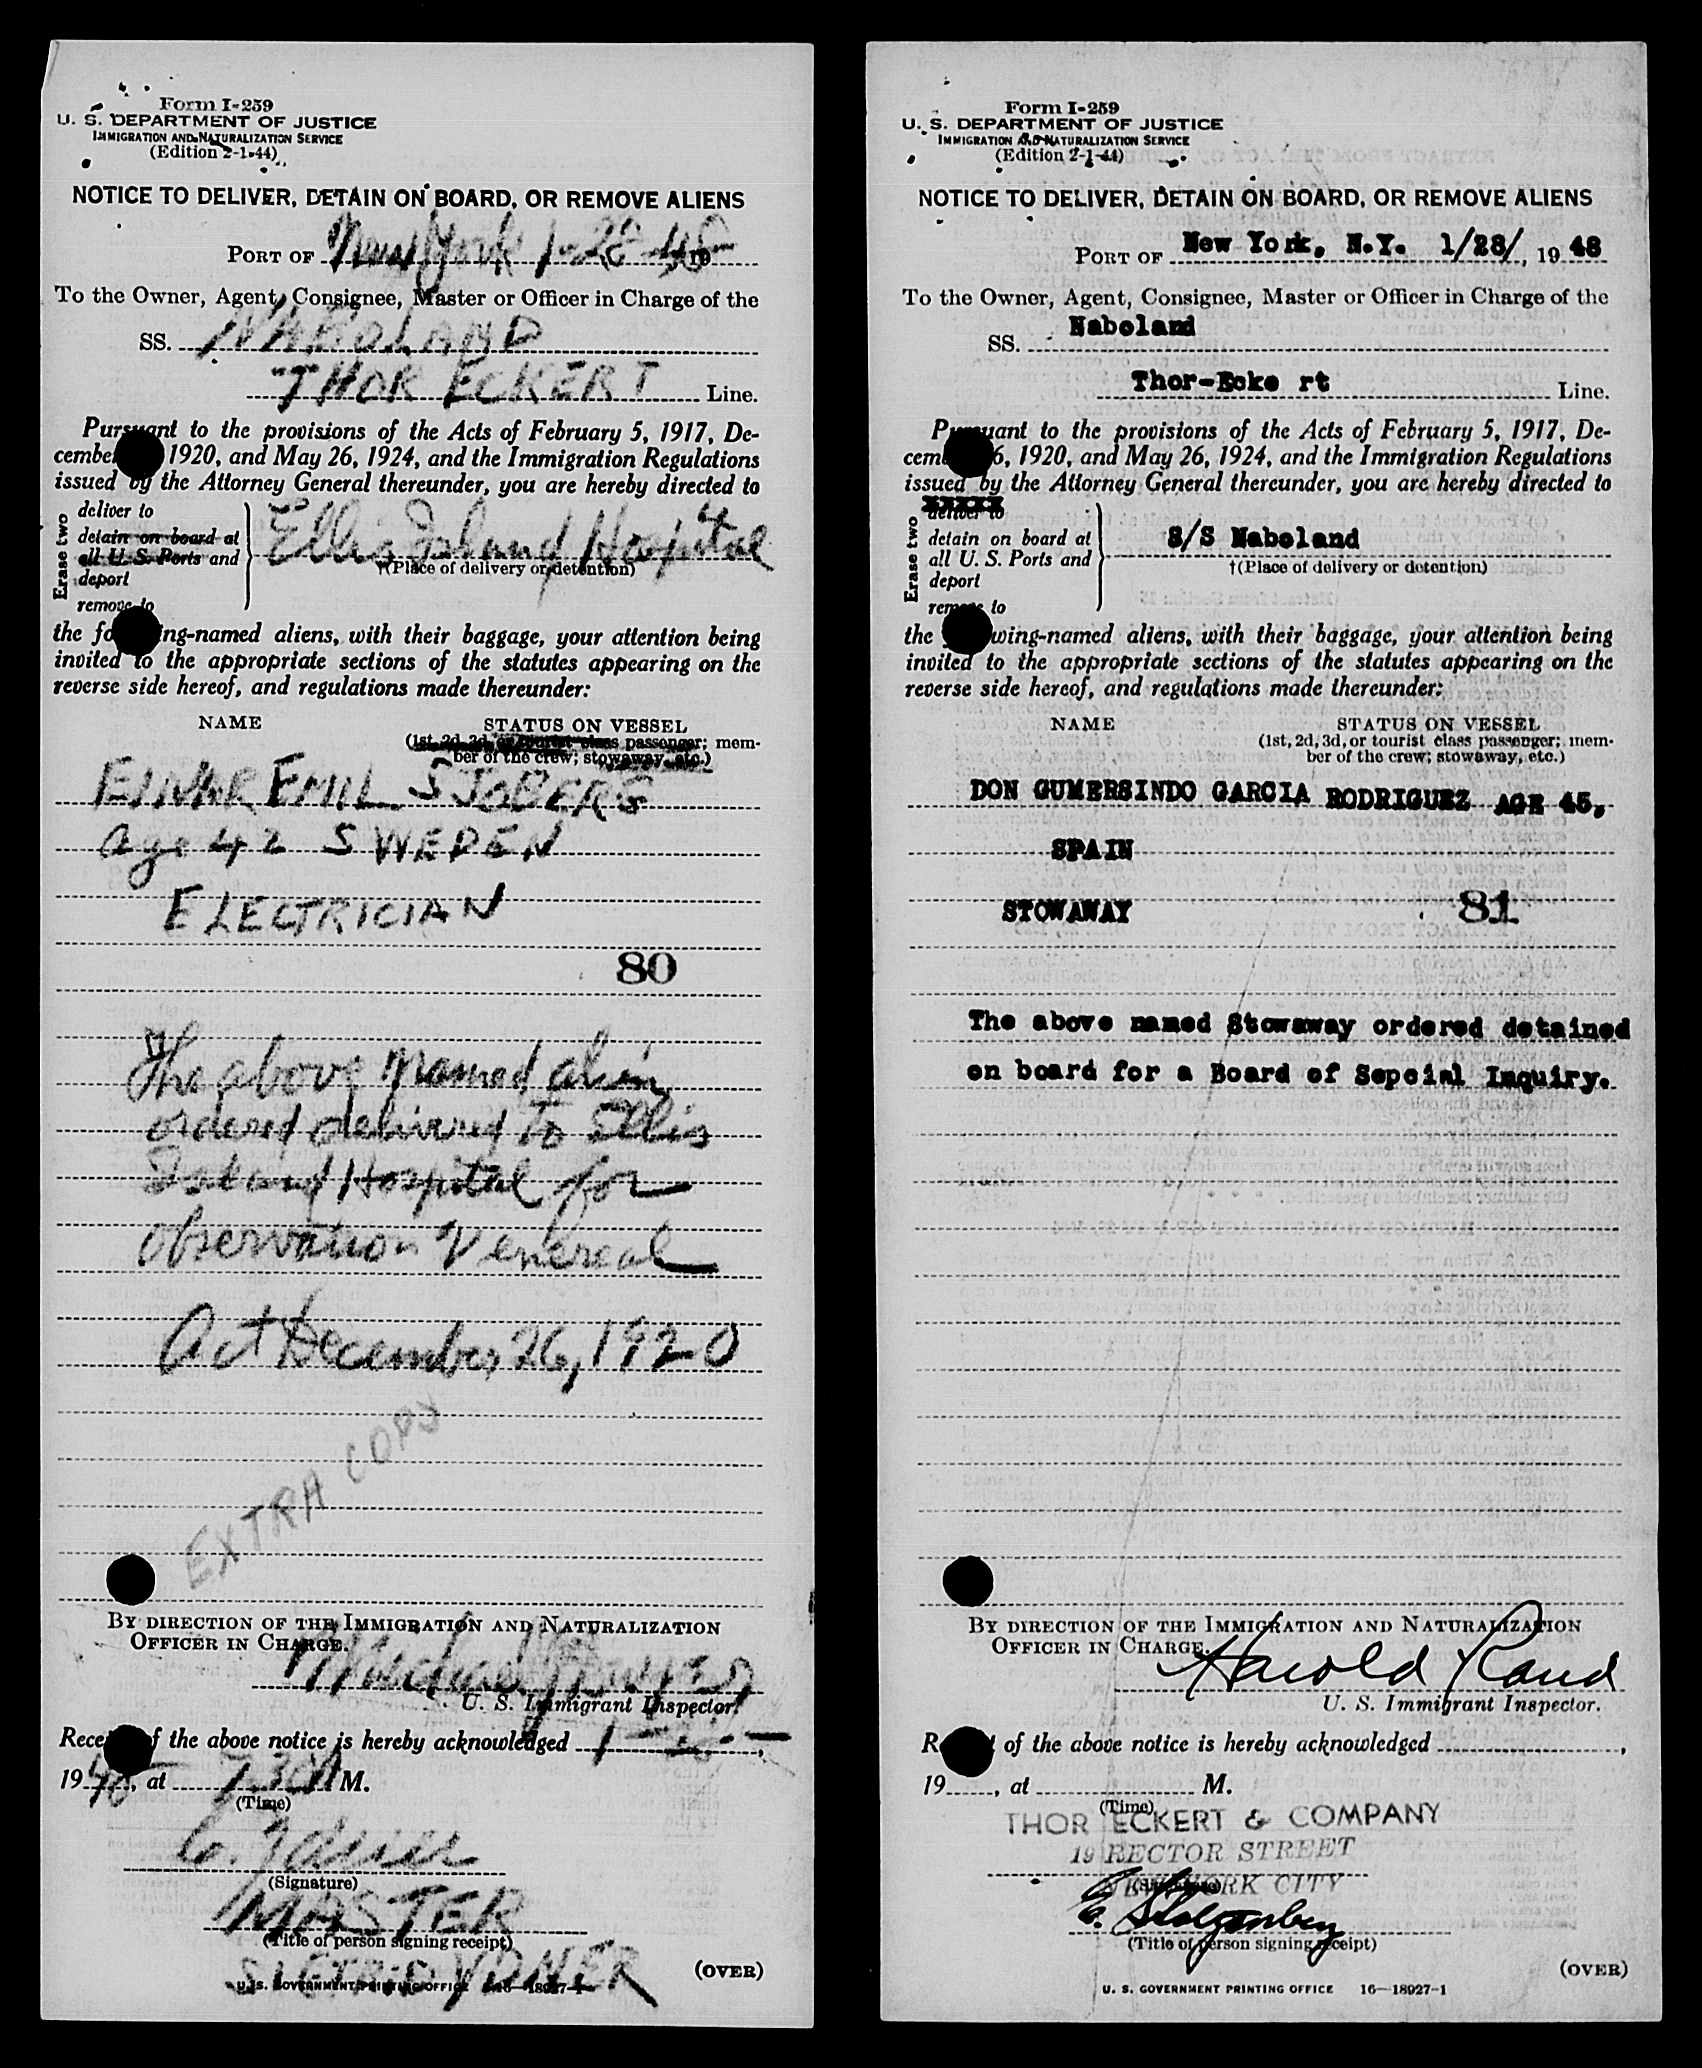 Form I-259
U. S. DEPARTMENT OF JUSTICE
IMMIGRATION AND NATURALIZATION SERVICE
(Edition 2-1-44)
NOTICE TO DELIVER, DETAIN ON BOARD, OR REMOVE ALIENS
PORT OF New York 1-28-48 19
To the Owner, Agent, Consignee, Master or Officer in Charge of the
SS. NABOLAND
THOR ECKERT Line.
Pursuant to the provisions of the Acts of February 5, 1917, De-
cember 1920, and May 26, 1924, and the Immigration Regulations
issued by the Attorney General thereunder, you are hereby directed to
Erase two
deliver to
detain on board at
all U. S. Ports and
deport
remove to
Ellis Island Hospital
†(Place of delivery or detention)
the following-named aliens, with their baggage, your attention being
invited to the appropriate sections of the statutes appearing on the
reverse side hereof, and regulations made thereunder:
NAME STATUS ON VESSEL
(1st, 2d, 3d, or tourist class passenger; mem-
ber of the crew; stowaway, etc.)
EINAR EMIL SJOBERG
age 42 SWEDEN
ELECTRICIAN
80
The above named alien
ordered delivered to Ellis
Island Hospital for
observation Venereal
Act December 26, 1920
EXTRA COPY
BY DIRECTION OF THE IMMIGRATION AND NATURALIZATION
OFFICER IN CHARGE.
U. S. Immigrant Inspector.
Receipt of the above notice is hereby acknowledged
1948, at 7.30 M.
(Time)
(Signature)
MASTER
(Title of person signing receipt)
U. S. GOVERNMENT PRINTING OFFICE 16—18927-1
(OVER)
Form I-259
U. S. DEPARTMENT OF JUSTICE
IMMIGRATION AND NATURALIZATION SERVICE
(Edition 2-1-44)
NOTICE TO DELIVER, DETAIN ON BOARD, OR REMOVE ALIENS
PORT OF New York, N.Y. 1/28/, 19 48
To the Owner, Agent, Consignee, Master or Officer in Charge of the
SS. Naboland
Thor-Ecke rt Line.
Pursuant to the provisions of the Acts of February 5, 1917, De-
cember 26, 1920, and May 26, 1924, and the Immigration Regulations
issued by the Attorney General thereunder, you are hereby directed to
Erase two
xxxxx
deliver to
detain on board at
all U. S. Ports and
deport
remove to
S/S Naboland
†(Place of delivery or detention)
the following-named aliens, with their baggage, your attention being
invited to the appropriate sections of the statutes appearing on the
reverse side hereof, and regulations made thereunder:
NAME STATUS ON VESSEL
(1st, 2d, 3d, or tourist class passenger; mem-
ber of the crew; stowaway, etc.)
DON GUMERSINDO GARCIA RODRIGUEZ AGE 45,
SPAIN
STOWAWAY 81
The above named Stowaway ordered detained
on board for a Board of Sepcial Inquiry.
BY DIRECTION OF THE IMMIGRATION AND NATURALIZATION
OFFICER IN CHARGE.
Harold Rand
U. S. Immigrant Inspector.
Receipt of the above notice is hereby acknowledged ,
19 , at M.
(Time)
THOR ECKERT & COMPANY
19 RECTOR STREET
NEW YORK CITY
(Signature)
E. Stolzenberg
(Title of person signing receipt)
(OVER)
U. S. GOVERNMENT PRINTING OFFICE 16—18927-1